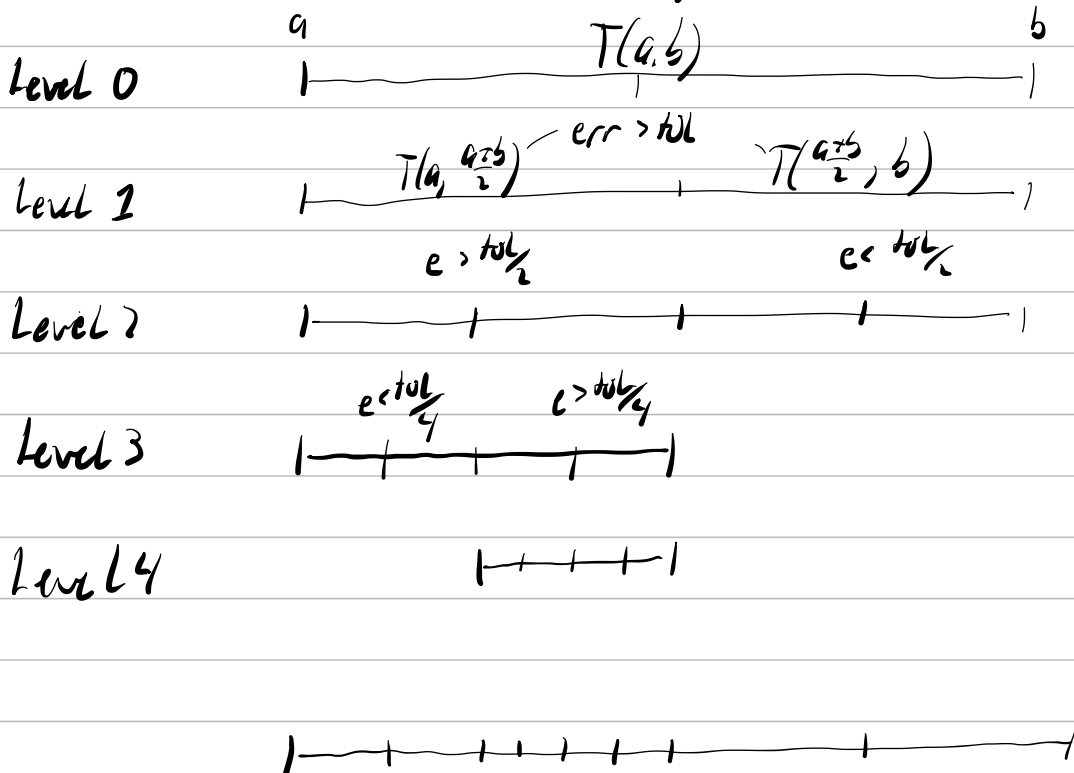 a b
Level 0 T(a,b)
err > tol
Level 1 T(a, a+b/2) T(a+b/2, b)
e > tol/2 e < tol/2
Level 2
e < tol/4 e > tol/4
Level 3
Level 4